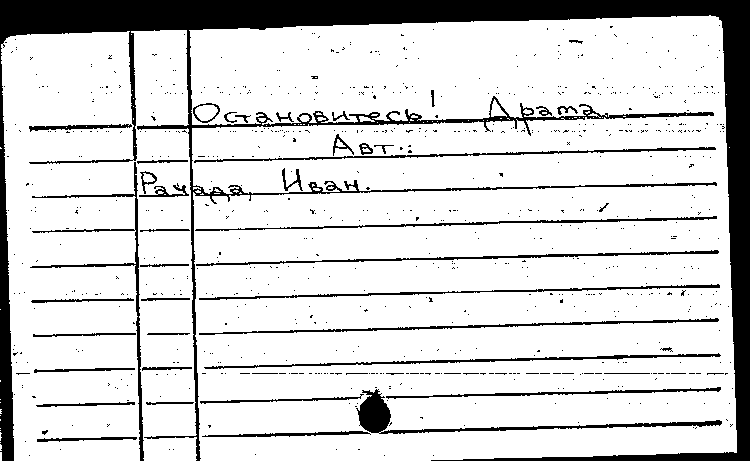 Остановитесь! Драма.
Авт.:
Рачада, Иван.